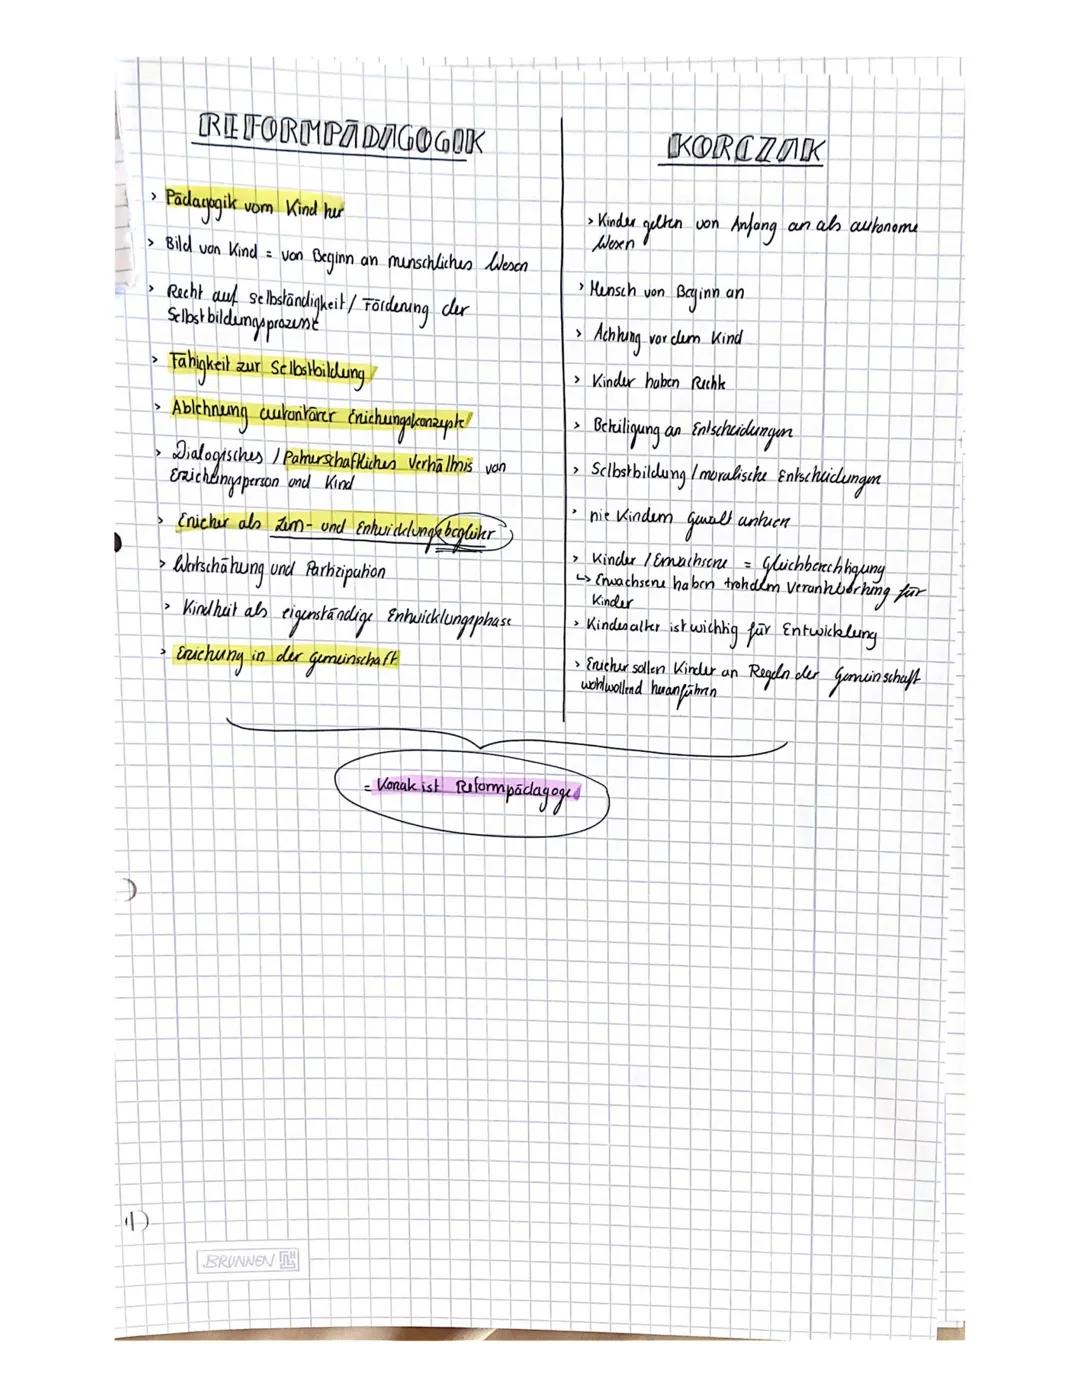 REFORMPÄDAGOGIK
> Pädagogik vom Kind her
> Bild von Kind = von Beginn an menschliches Wesen
> Recht auf Selbständigkeit / Förderung der
Selbstbildungsprozesse
> Fähigkeit zur Selbstbildung
> Ablehnung autoritärer Erziehungskonzepte
> Dialogisches / Partnerschaftliches Verhältnis von
Erziehungsperson und Kind
> Erzieher als Lern- und Entwicklungsbegleiter
> Wertschätzung und Partizipation
> Kindheit als eigenständige Entwicklungsphase
> Erziehung in der gemeinschaft
KORCZAK
> Kinder gelten von Anfang an als autonome
Wesen
> Mensch von Beginn an
> Achtung vor dem Kind
> Kinder haben Rechte
> Beteiligung an Entscheidungen
> Selbstbildung / moralische Entscheidungen
> nie Kindern gewalt antuen
> Kinder / Erwachsene = Gleichberechtigung
↳ Erwachsene haben trotzdem Verantwortung für
Kinder
> Kindesalter ist wichtig für Entwicklung
> Erzieher sollen Kinder an Regeln der Gemeinschaft
wohlwollend heranführen
= Korzak ist Reformpädagoge
BRUNNEN